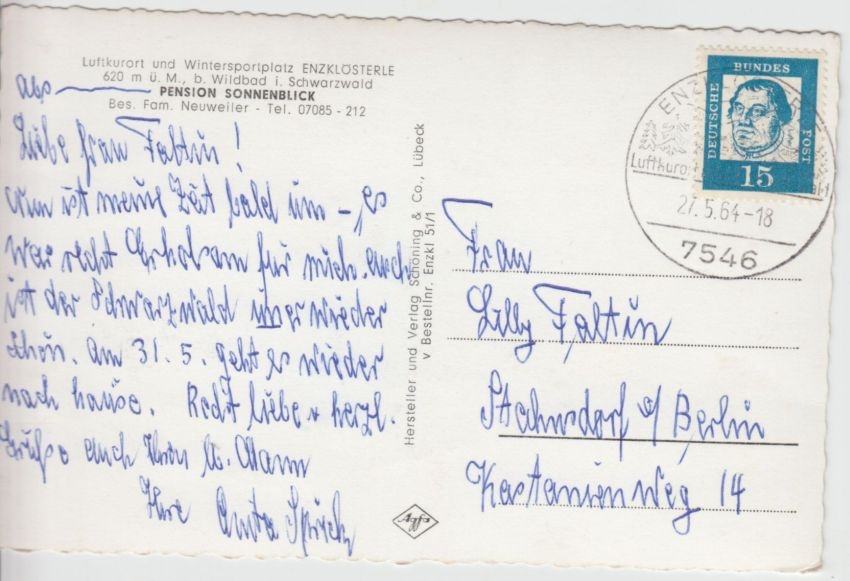 Luftkurort und Wintersportplatz ENZKLÖSTERLE
620 m ü. M., b. Wildbad i. Schwarzwald
Abs
PENSION SONNENBLICK
Bes. Fam. Neuweiler - Tel. 07085 - 212
Liebe Frau Faltin!
nun ist meine Zeit bald um -, es
war recht Erholsam für mich. auch
ist der Schwarzwald imer wieder
Schön. am 31. 5. geht es wieder
nach hause. Recht liebe + herzl.
Grüße auch Ihren lb. Mann
Ihre Anita
Hersteller und Verlag Schöning & Co., Lübeck
v Bestellnr. Enzkl 51/1
Agfa
DEUTSCHE BUNDES POST
15
ENZ
Luftkuror
27.5.64-18
7546
Frau
Lilly Faltin
Stahnsdorf b/ Berlin
Kastanienweg 14